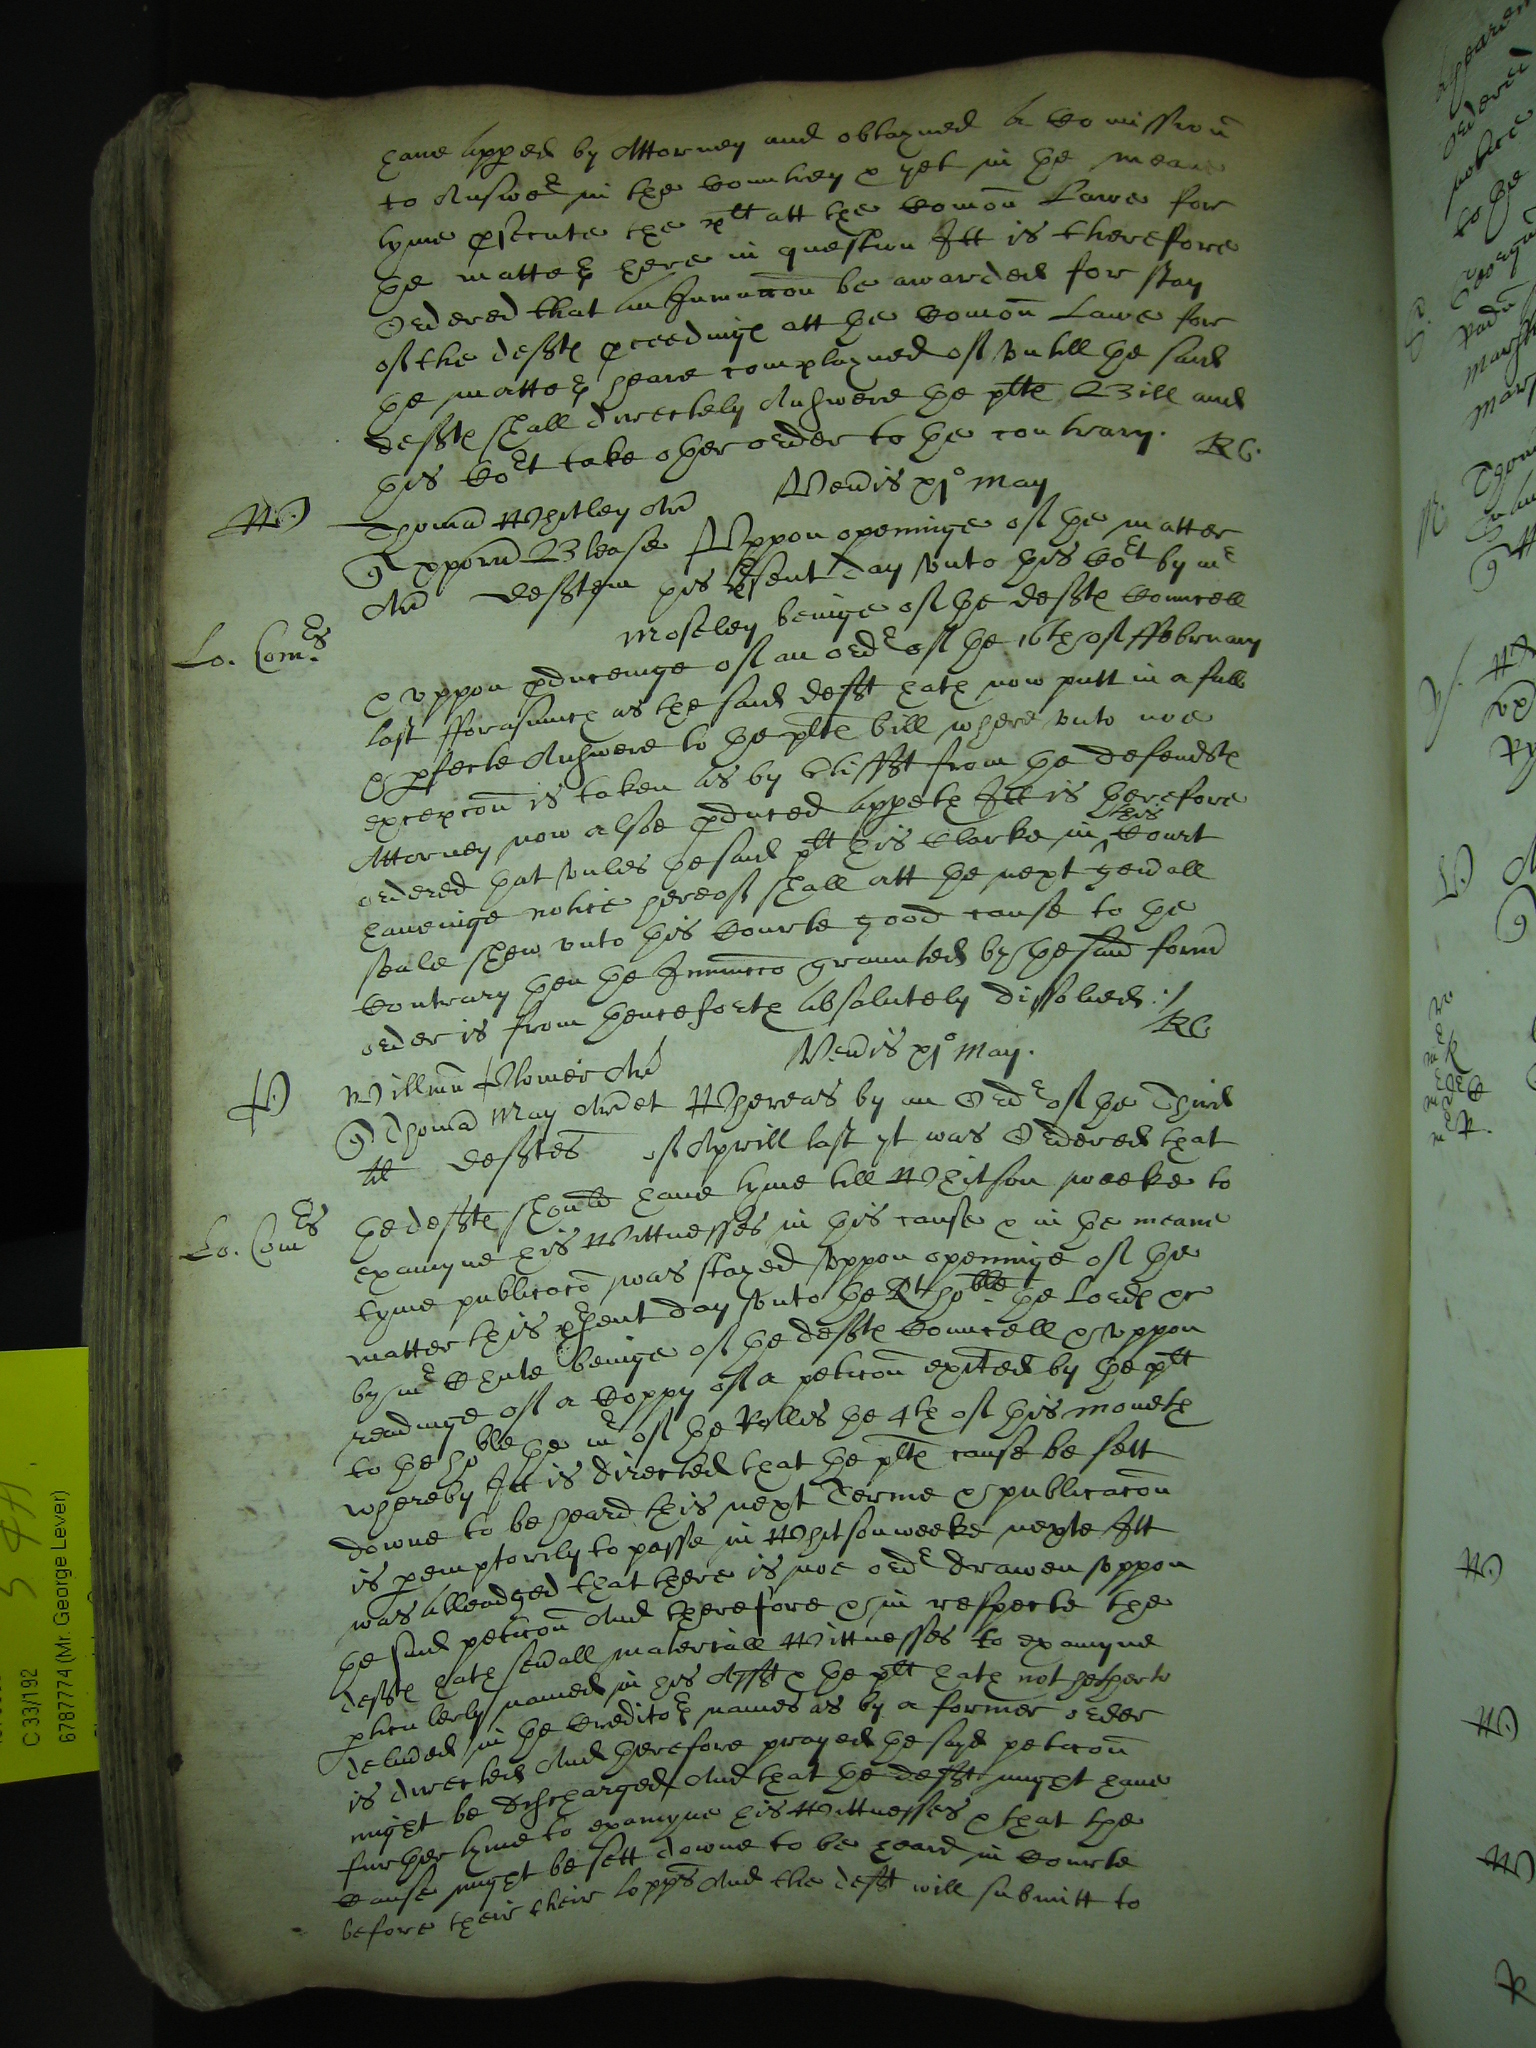 haue apped by Attorney and obtayned a Comission
to Answer in the Countrey & yet in the meane
tyme psecute the plt att the Comon Lawe for
the matter here in question Itt is therefore
Ordered that an Iniunccon be awarded for stay
of the defftes pceedinges att the Comon Lawe for
the matter heare complayned of vntill the said
defftes shall directely Answere the pltes Bill and
this Cort take other order to the contrary. RC.
Venris xjo May
W
Thomas Whitley Ar
Lo. Comrs
Vppon openinge of the matter
Blease
Ar defftem this psent day vnto this Cort by mr
Moseley beinge of the defftes Councell
& vppon pduceinge of an order of the 16th of ffebruary
last fforasmuch as the said defft hath now putt in a full
& pfecte Answere to the pltes bill where vnto noe
excepcon is taken as by Ctifft from the defendtes
Attorney now alsoe pduced appeth Itt is therefore
ordered that vnles the said plt his Clarke in this Court
haueinge notice hereof shall att the next genall
seale shew vnto this Courte good cause to the
Contrary then the Iniuncco graunted by the said form
order is from henceforth absolutely dissolued :/
RC
Venris xjo May.
P
Willm Plomer Ar
Thomas May Ar et
al defftes
Lo. Comrs
Whereas by an Order of the Third
of Aprill last yt was Ordered that
the defftes should haue tyme till Whitson weeke to
examyne his Wittnesses in this cause & in the meane
tyme publicacon was stayed vppon openinge of the
matter this psent day vnto the Rt hoble the Lordes &c
by mr Chute beinge of the defftes Councell & vppon
readinge of a Coppy of a peticon exited by the plt
to the hoble the mr of the Rolles the 4th of this moneth
whereby Itt is directed that the pltes cause be sett
downe to be heard this next Terme & publicacon
is pemptorily to passe in Whitsonweeke nexte Itt
was alleadged that there is noe order drawen vppon
the said peticon And therefore & in respecte the
defftes hath seuall materiall Wittnesses to examyne
pticulerly named in his Afft & the plt hath not hetherto
deliuered in the Creditors names as by a former order
is directed And therefore prayed the sayd peticon
might be discharged And that the defft might haue
further tyme to examyne his Wittnesses & that the
Cause might be sett downe to be heard in Courte
before their their lopps And the defft will submitt to
C 33/192
6787774 (Mr. George Lever)